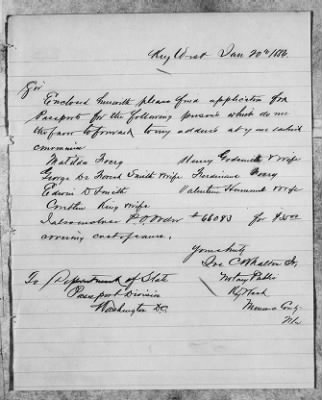 Key West Jan 20th 1886
Sir
Enclosed herewith please find application for
Passports for the following persons which do me
the favor to forward to my address at your earliest
convenience
Matilda
Henry & Wife
George De Smith Wife Ferdinand
Edwin D Smith
Valentine Wife
King Wife
I also enclose P.O. Order # 66083 for $35.00
covering cost of same.
Yours truly
C Whalton Jr
To Department of State
Passport Division
Washington D.C.
Notary Public
Key West
Monroe County
Fla